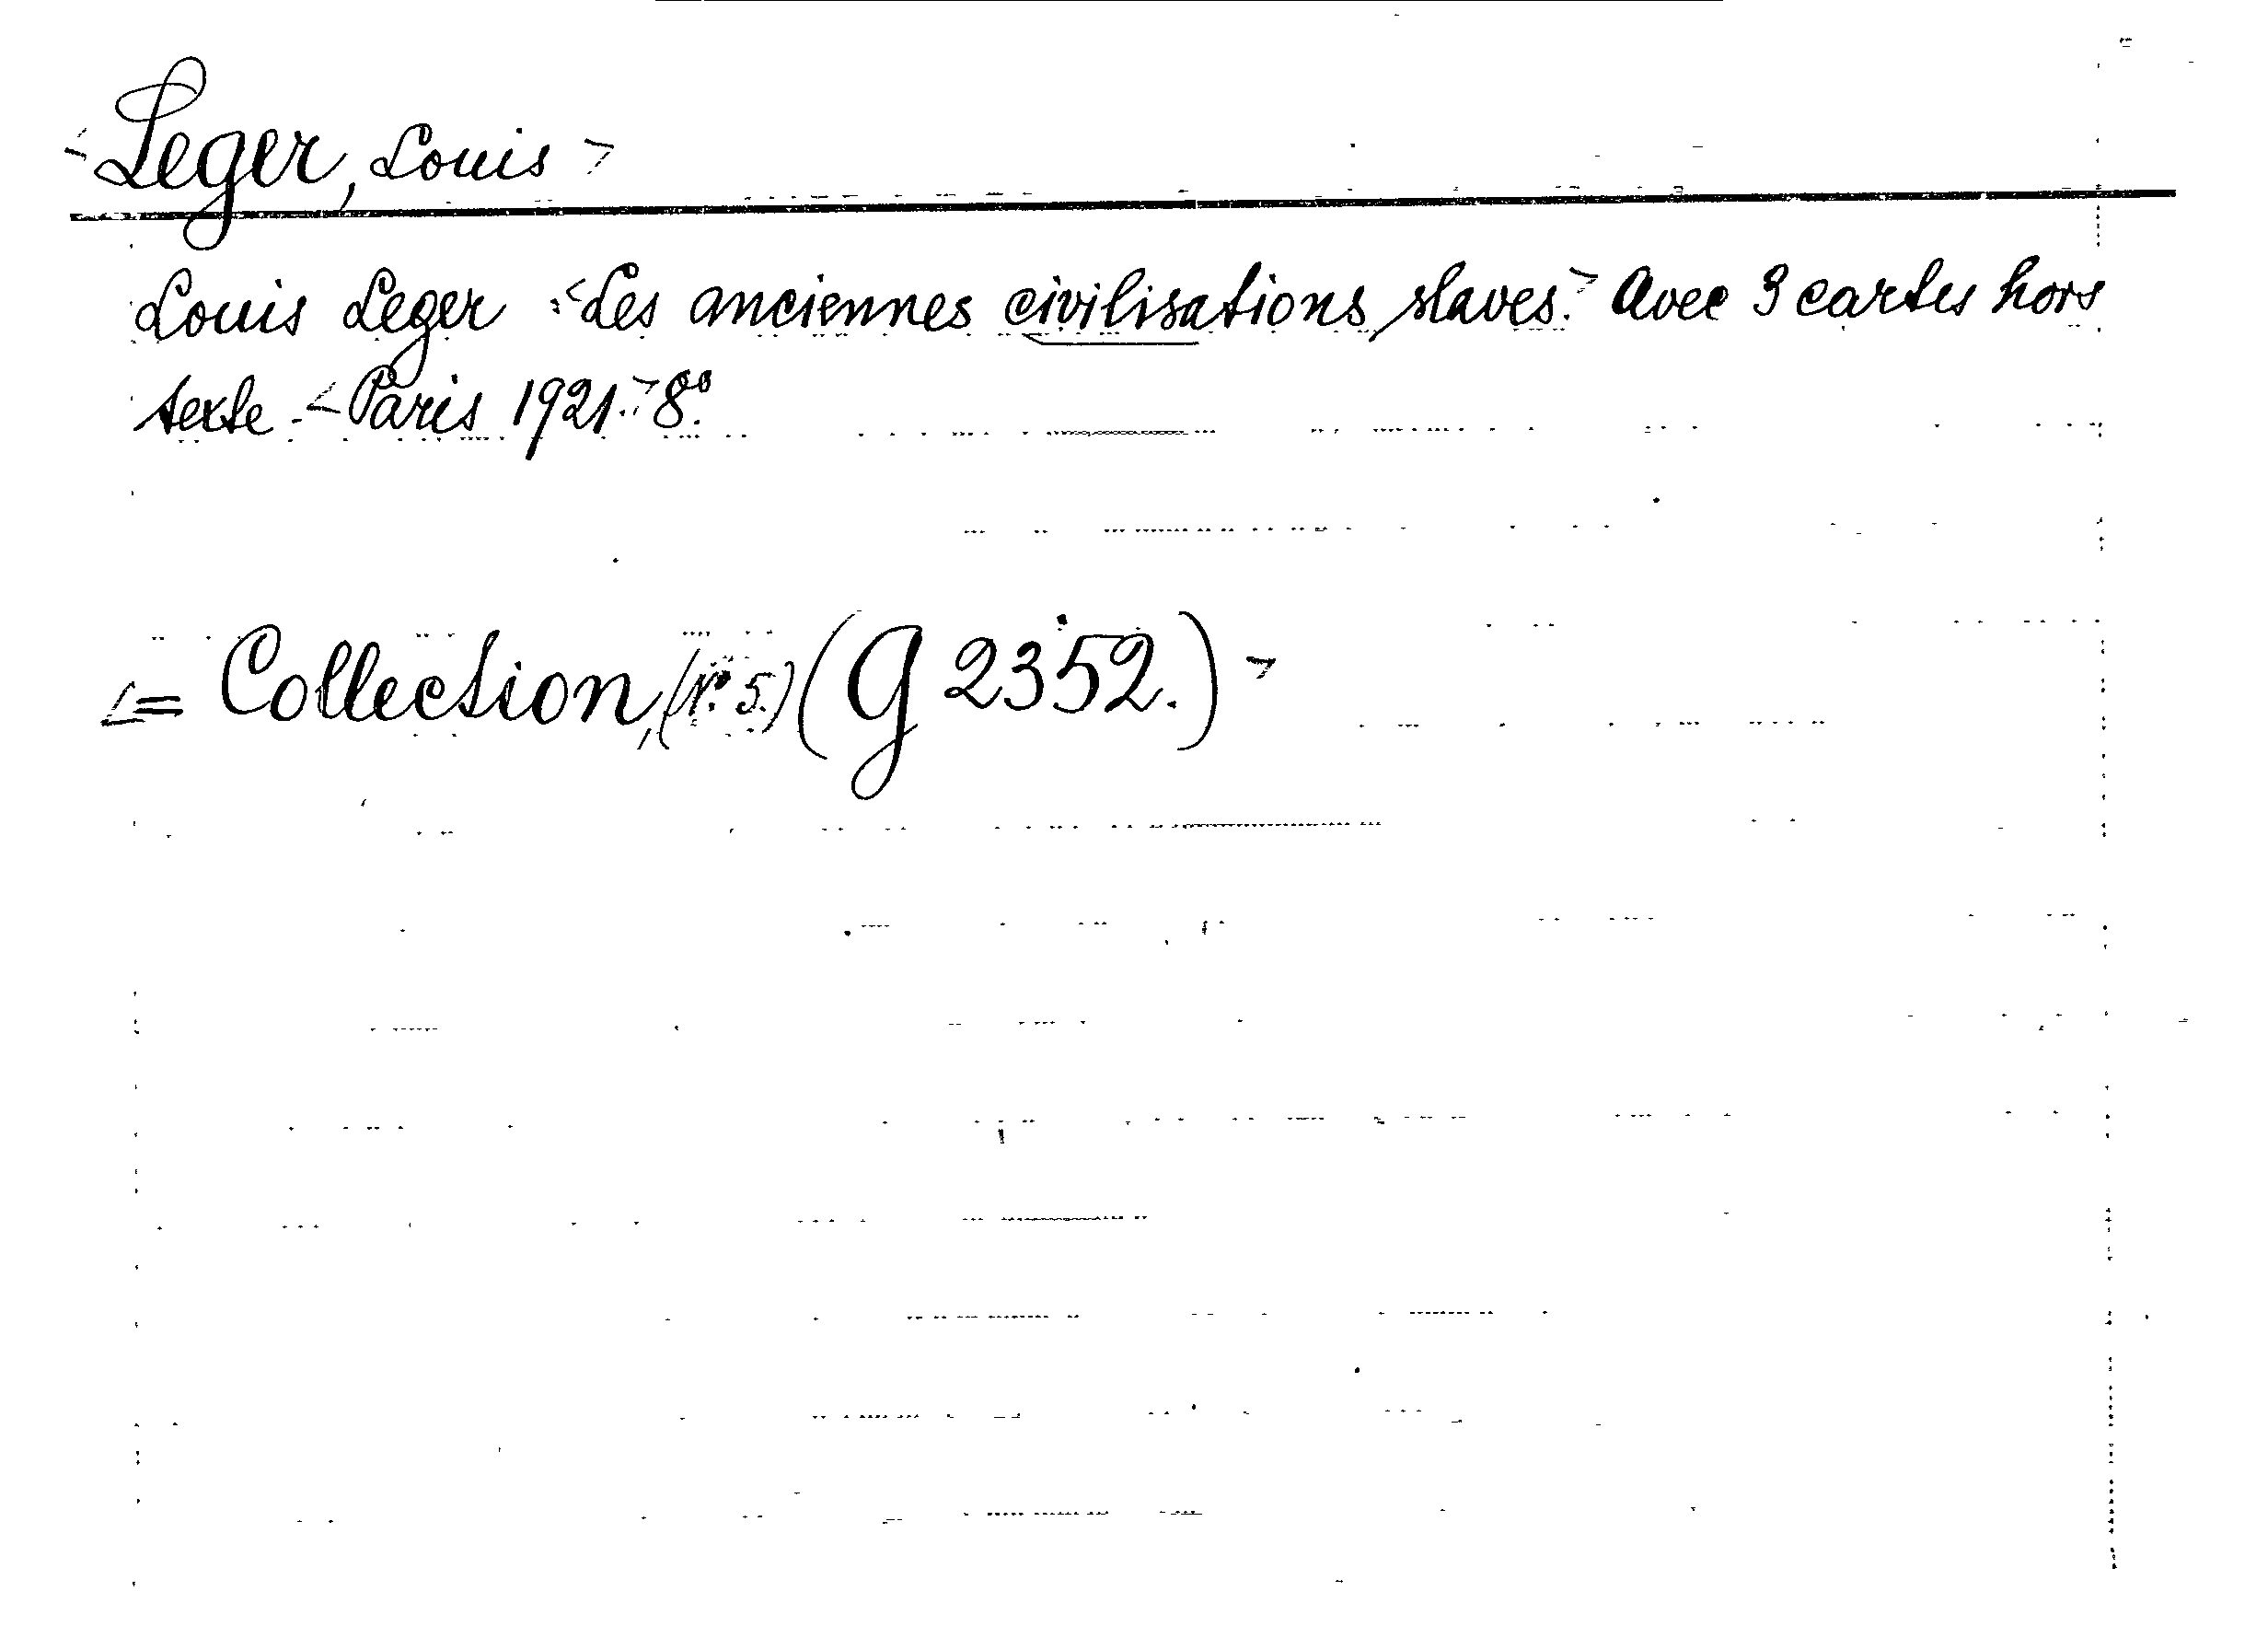 <Leger, Louis>
Louis Leger <Les anciennes civilisations slaves.> Avec 3 cartes hors
texte. <Paris 1921.> 8º.
<= Collection, (Nº 5.) (G 2352.)>